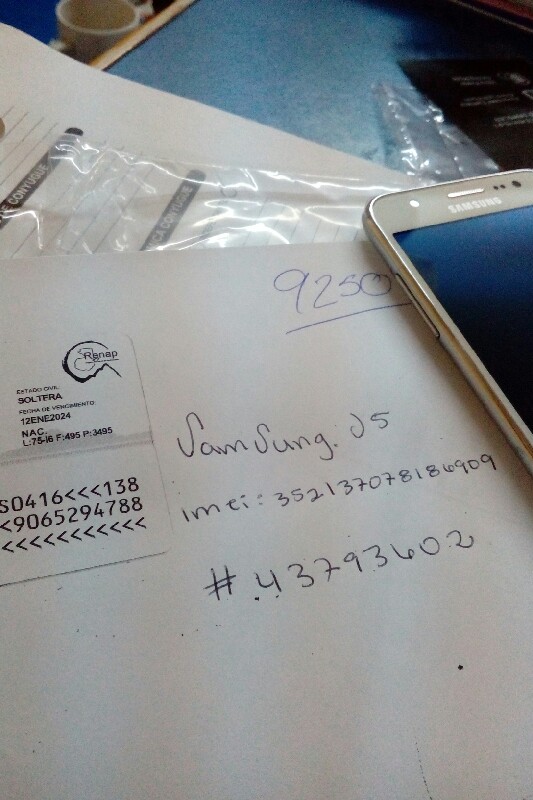 CA CONYUGUE
SAMSUNG
9250
Renap
ESTADO CIVIL:
SOLTERA
FECHA DE VENCIMIENTO:
12ENE2024
NAC.
L:75-I6 F:495 P:3495
S0416<<<138
<9065294788
<<<<<<<<<<<
SamSung. J5
imei: 352137078186909
#.43793602